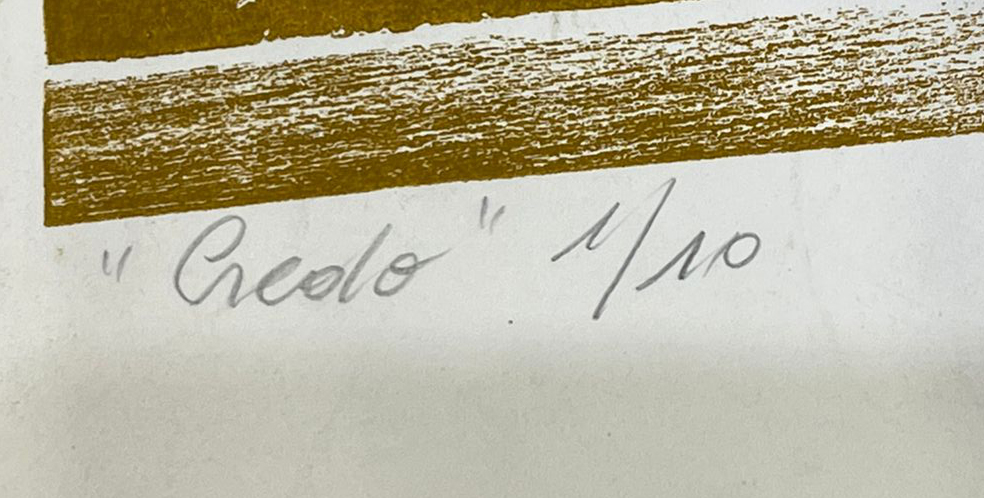 "Credo" 1/10